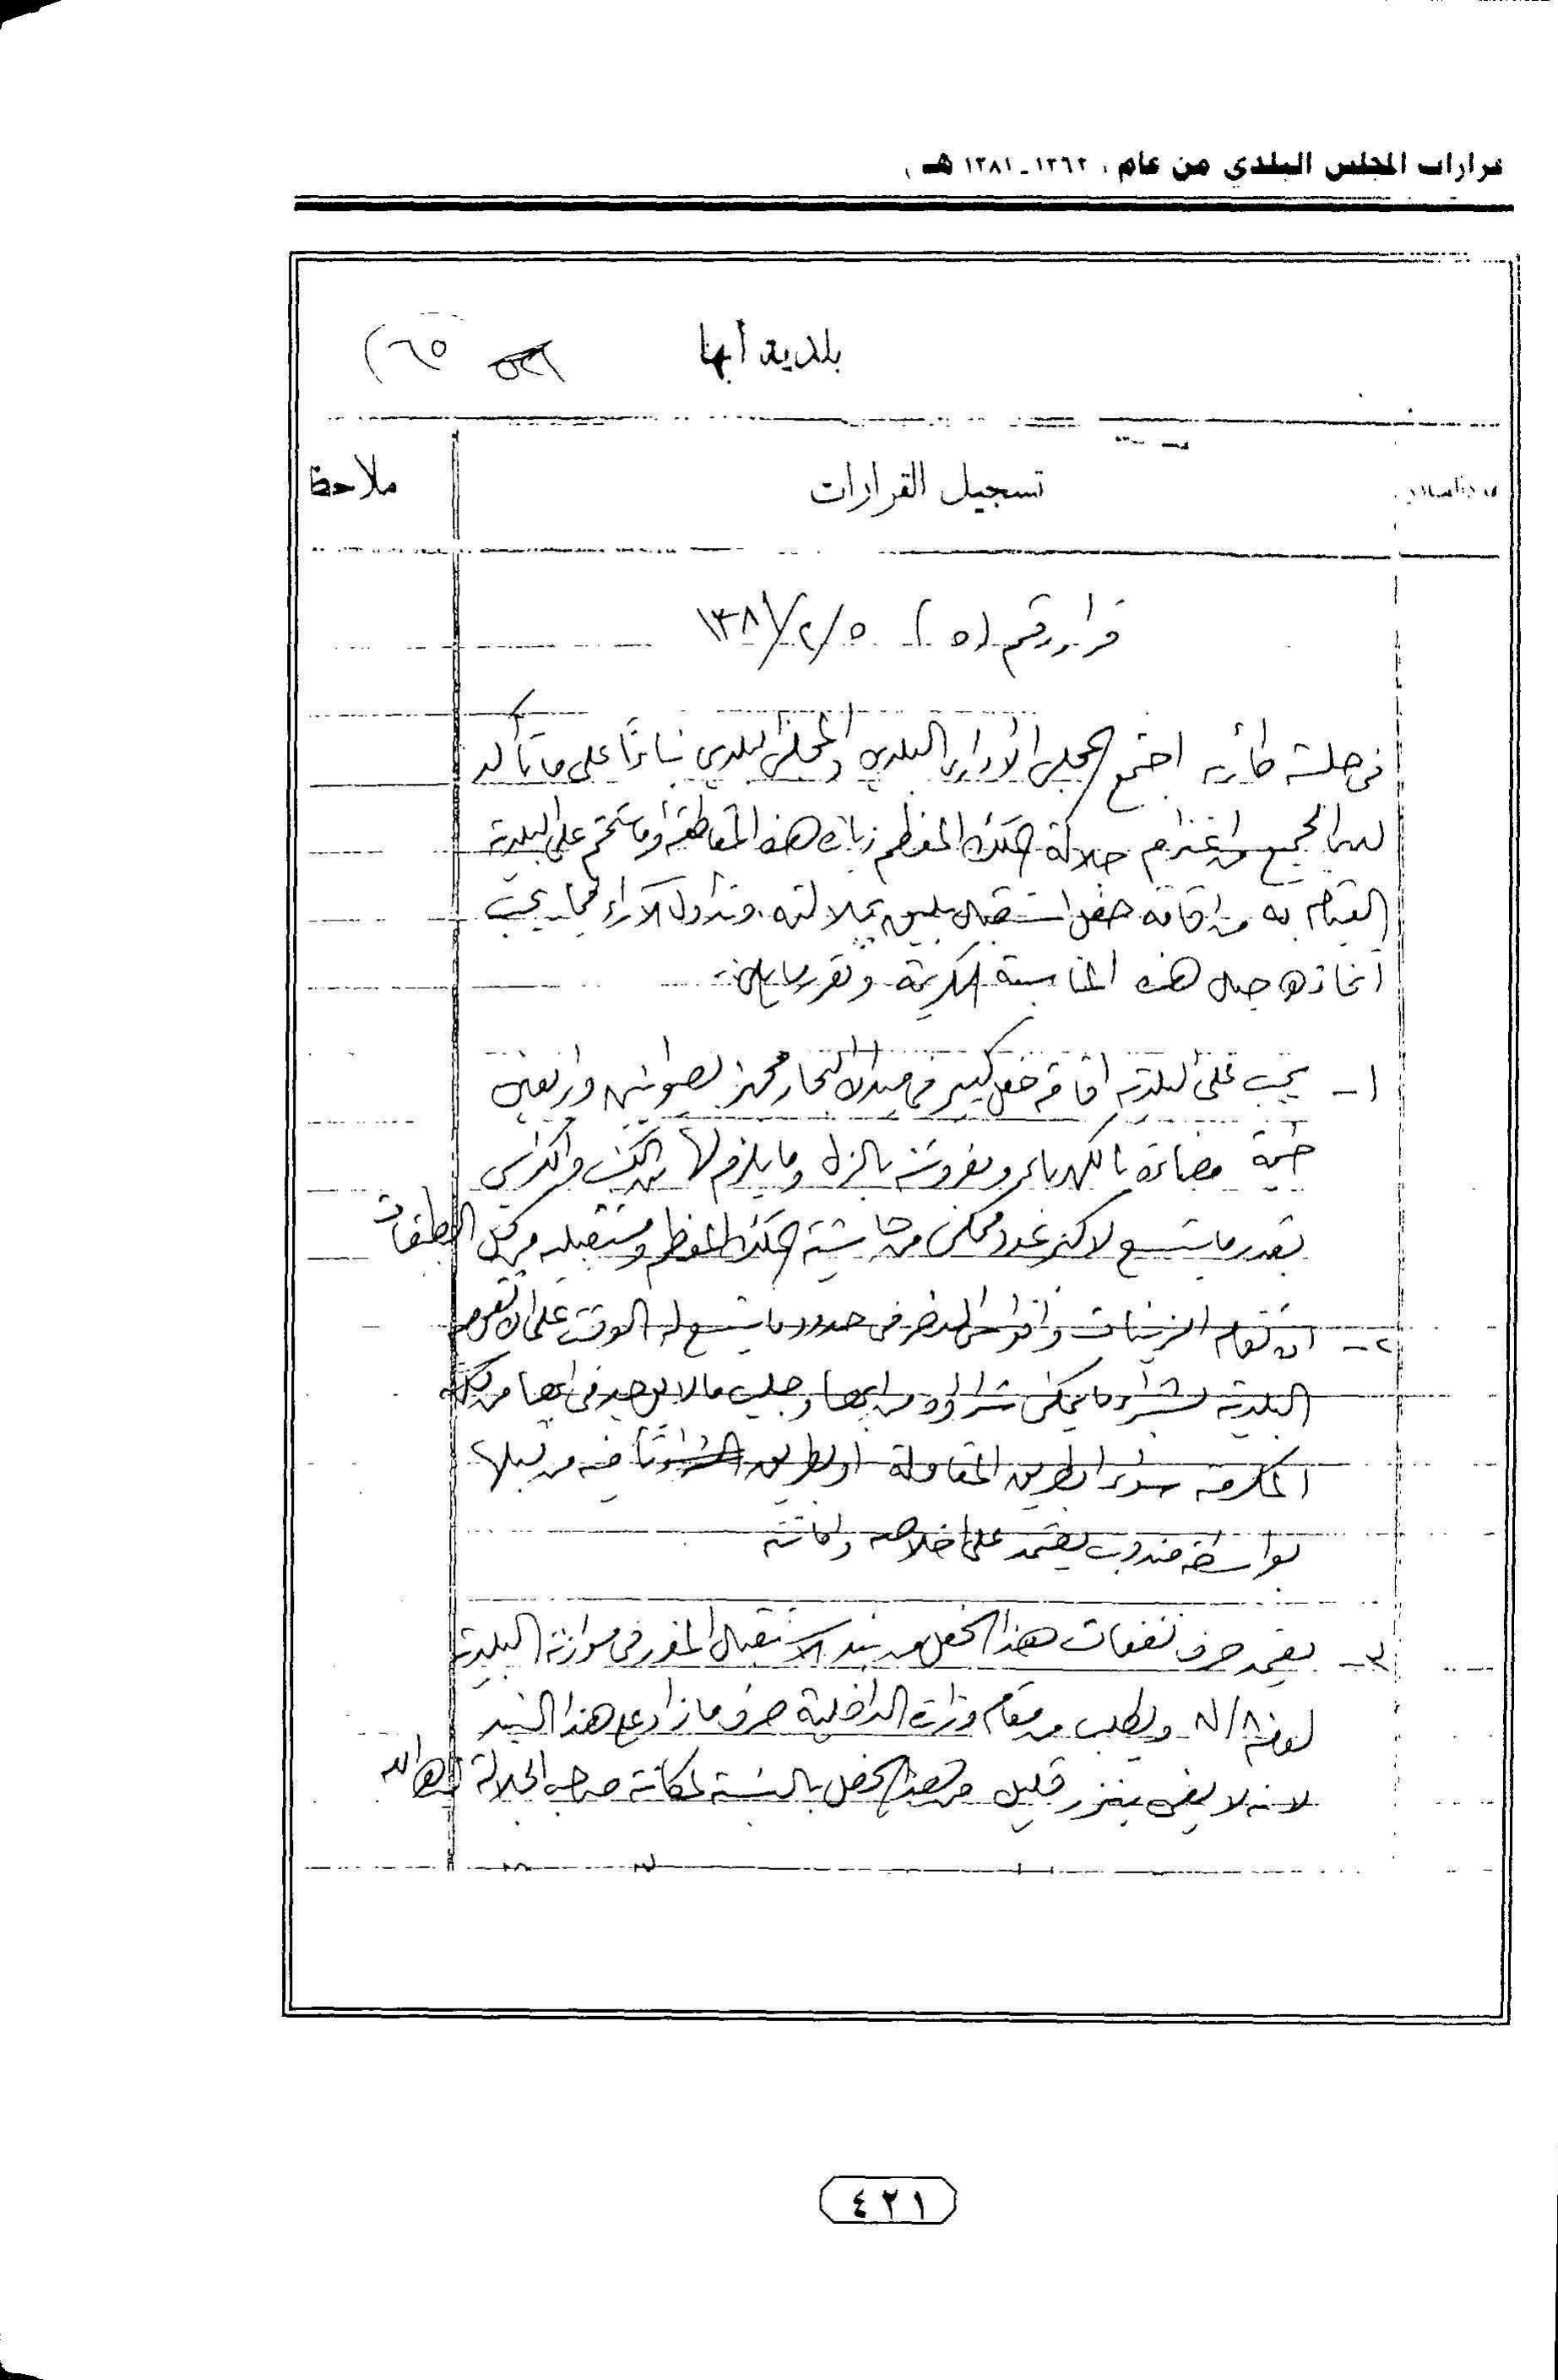 قرارات المجلس البلدي من عام ( ١٣٦٢ - ١٣٨١ هـ )
بلدية أبها
(٦٥
تسجيل القرارات
ملاحظ
قرار رقم (٥) ٥/٢/١٣٨١
في جلسة طارئة اجتمع المجلس الإداري البلدي والمجلس البلدي بناءً على ما تأكد
لدى الجميع من اعتزام جلالة الملك المعظم زيارة هذه المقاطعة وما يتحتم على البلدية
القيام به من إقامة حفل استقبال يليق بجلالته وتداول الآراء فيما يجب
اتخاذه حيال هذه المناسبة الكريمة وتقرر ما يلي:-
١- يجب على البلدية إقامة حفل كبير في ميدان البحار مجهز بصوانين وأربعين
خيمة مضاءة بالكهرباء ومفروشة بالزل وما يلزم لها من الكنب والكراسي
بقدر ما يتسع لأكبر عدد ممكن من حاشية الملك المعظم ومستقبليه من كل الطبقات
٢- أن تقام الزينات وأقواس النصر في حدود ما يتسع له الوقت على أن تقوم
البلدية بشراء ما يمكن شراؤه من أبها وجلب ما لا يوجد في أبها من مكة
المكرمة سواء بطريق المقاولة أو بطريق من قبلها
بواسطة مندوب يعتمد على إخلاصه وأمانته
٣- يعتمد صرف نفقات هذا الحفل من بند الاستقبال المقرر في موازنة البلدية
ويطلب من مقام وزارة الداخلية صرف ما زاد على هذا البند
لأنه لا يفي بنزر قليل من هذا الحفل بالنسبة لمكانة صاحب الجلالة
٤٢١